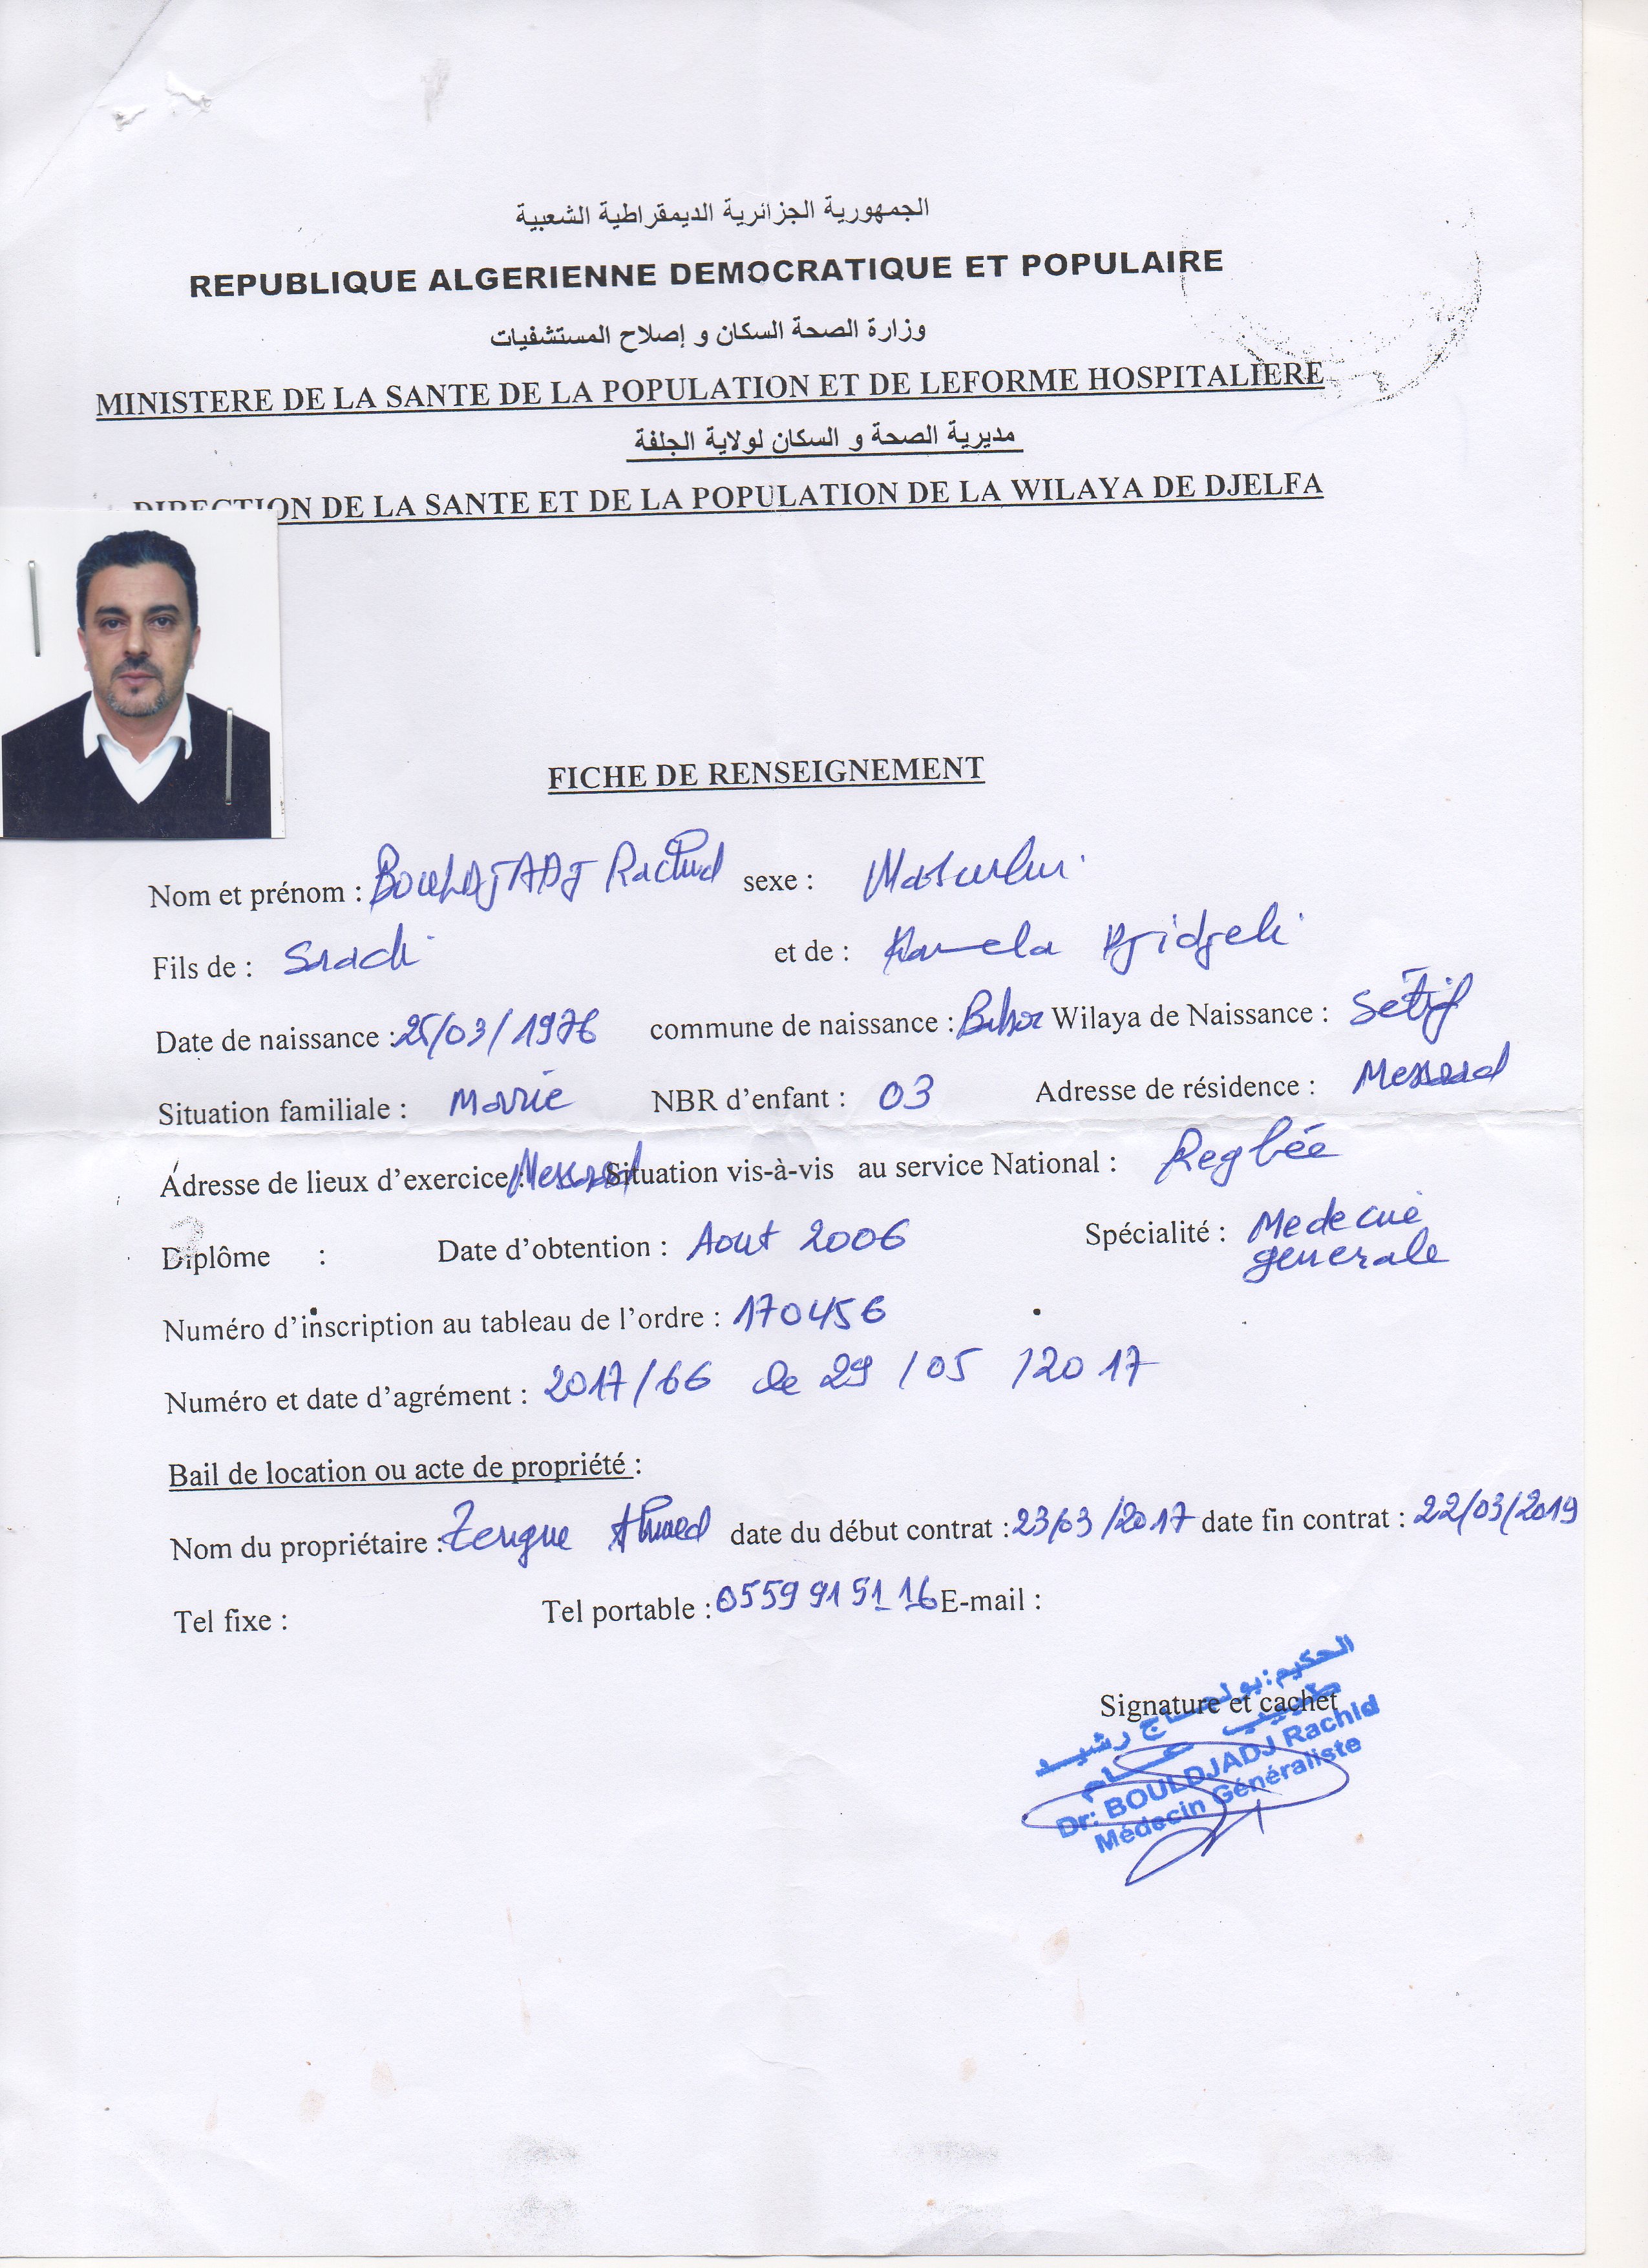 الجمهورية الجزائرية الديمقراطية الشعبية
REPUBLIQUE ALGERIENNE DEMOCRATIQUE ET POPULAIRE
وزارة الصحة السكان و إصلاح المستشفيات
MINISTERE DE LA SANTE DE LA POPULATION ET DE LEFORME HOSPITALIERE
مديرية الصحة و السكان لولاية الجلفة
DIRECTION DE LA SANTE ET DE LA POPULATION DE LA WILAYA DE DJELFA
FICHE DE RENSEIGNEMENT
Nom et prénom : BOULDJADJ Rachid sexe : Masculin
Fils de : et de : Djidjeli
Date de naissance : 25/03/1976 commune de naissance : Wilaya de Naissance : Sétif
Situation familiale : Marié NBR d'enfant : 03 Adresse de résidence : Messaad
Adresse de lieux d'exercice : Messaad Situation vis-à-vis au service National :
Diplôme : Date d'obtention : Aout 2006 Spécialité : Medecine generale
Numéro d'inscription au tableau de l'ordre : 170456
Numéro et date d'agrément : 2017/66 de 29/05/2017
Bail de location ou acte de propriété :
Nom du propriétaire : Ahmed date du début contrat : 23/03/2017 date fin contrat : 22/03/2019
Tel fixe : Tel portable : 0559 91 51 16 E-mail :
Signature et cachet
الحكيم: بولجاج رشيد
طبيب عام
Dr: BOULDJADJ Rachid
Médecin Généraliste